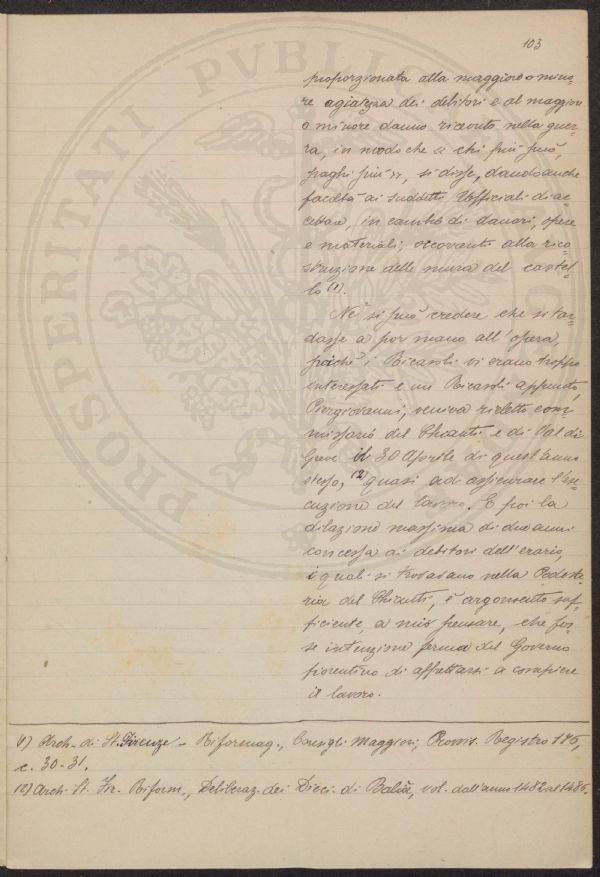 103
proporzionata alla maggiore o mino=
re agiatezza dei debitori e al maggiore
o minore danno ricevuto nella guer=
ra, in modo che "a chi più può,
paghi più", si disse, dando anche
facoltà ai suddetti Ufficiali di ac=
cettare, in cambio di danari, opere
e materiali, occorrenti alla rico=
struzione delle mura del castel=
lo (1).
Nè si può credere che si tar=
dasse a por mano all'opera,
poichè i Ricasoli vi erano troppo
interessati e un Ricasoli appunto,
Piergiovanni, veniva rieletto com=
missario del Chianti e di Val di
Greve il 30 Aprile di quest'anno
stesso, (2) quasi ad assicurare l'ese=
cuzione del lavoro. E poi la
dilazione massima di due anni
concessa ai debitori dell'erario,
i quali si trovavano nella Podeste=
ria del Chianti, è argomento suf=
ficiente, a mio pensare, che fos=
se intenzione ferma del Governo
fiorentino di affrettarsi a compiere
il lavoro.
(1) Arch. di St. Firenze - Riformag., Consigli Maggiori, Provvis. Registro 176,
c. 30-31.
(2) Arch. St. Fir. Riform., Deliberaz. dei Dieci di Balìa, vol. dall'anno 1482 al 1485.
PROSPERITATI PVBLICAE